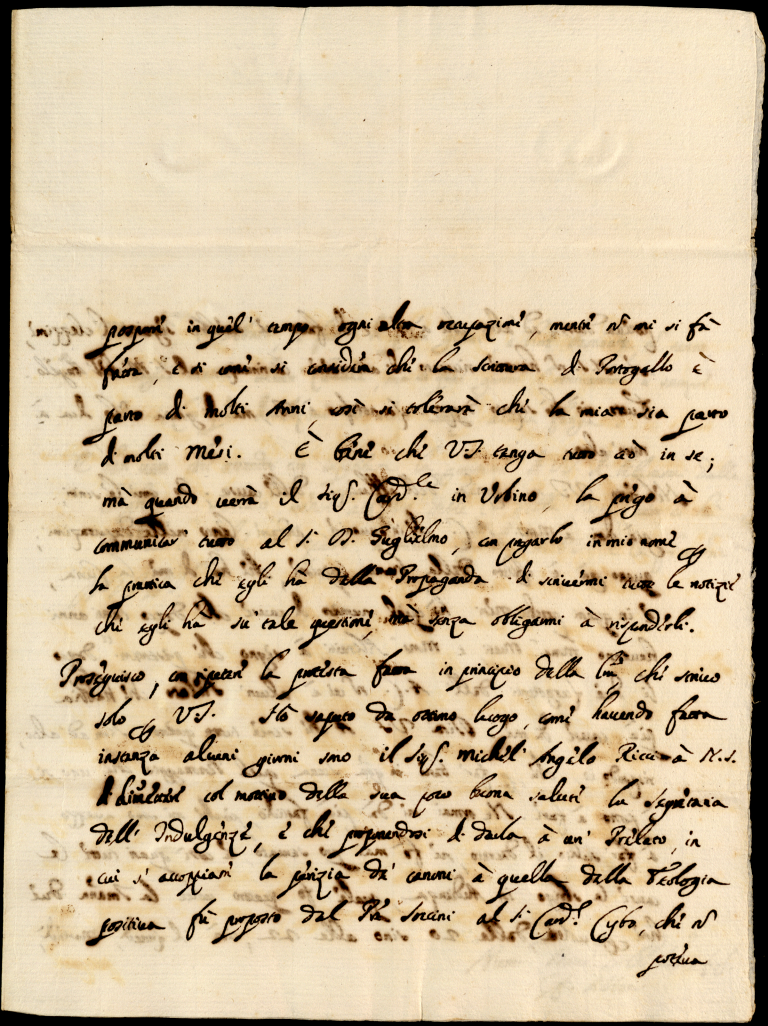 in quel' tempo ogni altra occupazione, mentre nō mi si fà
, e si come si considera che la scrittura di Portogallo è
parto di molti Anni, così si tolerarà che la mia sia parto
di molti Mesi. È bene che VS. tenga tutto ciò in se;
mà quando verrà il Sigʳ. Cardˡᵉ in Urbino, la prego à
communicar tutto al S. D. Guglielmo, con pregarlo in mio nome ꝑ
la prattica che egli hà della Propaganda di scrivermi tutte le notizie
che egli hà sù tale questione, mà senza obligarmi à risponderli.
Proseguisco, con ripeter la protesta fatta in principio della lrā, che scrivo
solo ꝑ VS. Hò saputo da ottimo luogo, come havendo fatta
instanza alcuni giorni sono il Sigʳ. Michel' Angelo Ricci à N.S.
di dimetter col mottivo della sua poco buona salute la Segretaria
dell' Indulgenze, e che premendosi di darla à un' Prelato, in
cui s' accoppiasse la perizia de' canoni à quella della Teologia
positiva fù proposto dal Prē Soccini al S. Cardˡ. Cybo, che nō
poteva